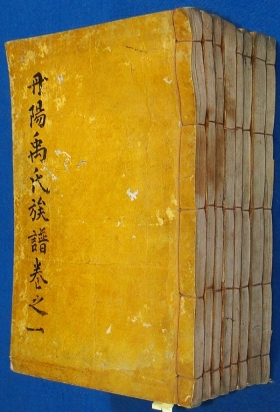 丹陽禹氏族譜卷之一